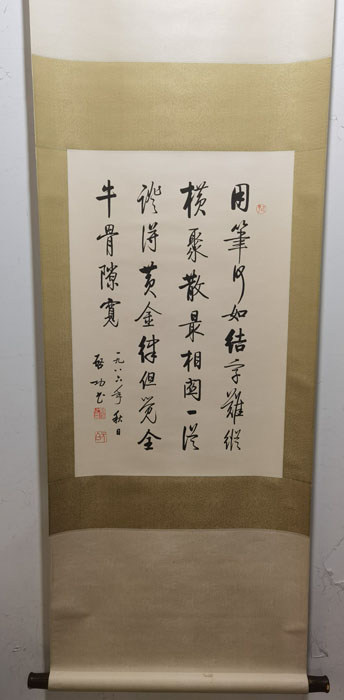 用筆何如結字難縱
橫聚散最相關一從
證得黄金律但覺全
牛骨隙寬
一九八六年秋日
啓功書